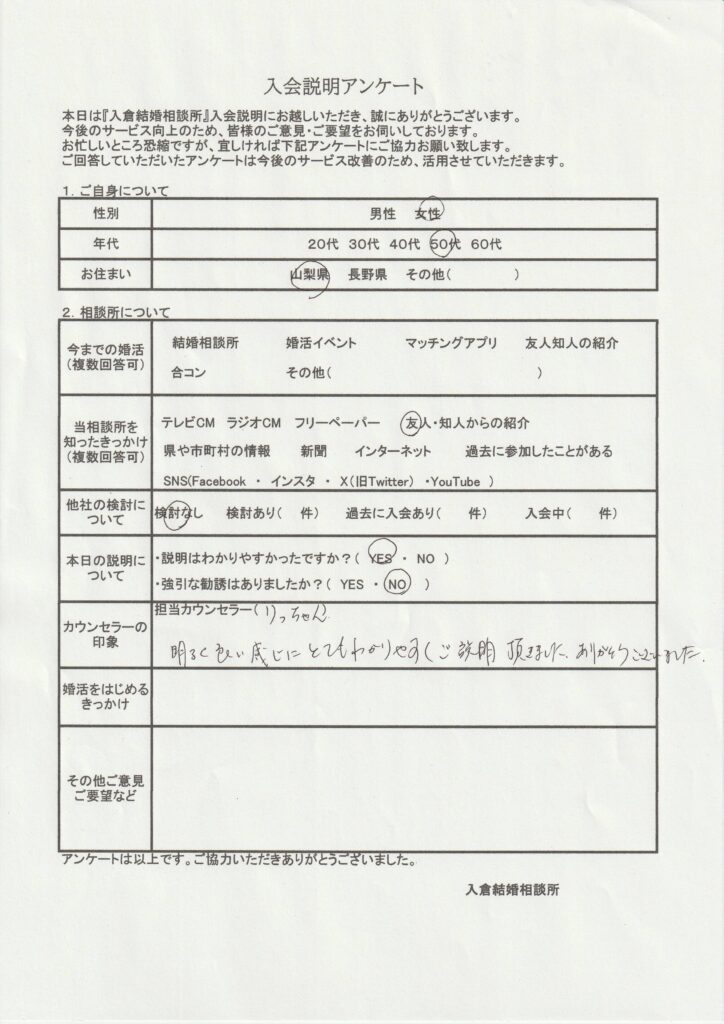 入会説明アンケート
本日は『入倉結婚相談所』入会説明にお越しいただき、誠にありがとうございます。
今後のサービス向上のため、皆様のご意見・ご要望をお伺いしております。
お忙しいところ恐縮ですが、宜しければ下記アンケートにご協力お願い致します。
ご回答していただいたアンケートは今後のサービス改善のため、活用させていただきます。
1. ご自身について
性別 男性 女性
年代 20代 30代 40代 50代 60代
お住まい 山梨県 長野県 その他( )
2. 相談所について
今までの婚活
(複数回答可)
結婚相談所 婚活イベント マッチングアプリ 友人知人の紹介
合コン その他( )
当相談所を
知ったきっかけ
(複数回答可)
テレビCM ラジオCM フリーペーパー 友人・知人からの紹介
県や市町村の情報 新聞 インターネット 過去に参加したことがある
SNS(Facebook ・ インスタ ・ X(旧Twitter) ・YouTube )
他社の検討に
ついて
検討なし 検討あり( 件) 過去に入会あり( 件) 入会中( 件)
本日の説明に
ついて
・説明はわかりやすかったですか?( YES ・ NO )
・強引な勧誘はありましたか?( YES ・ NO )
カウンセラーの
印象
担当カウンセラー( りっちゃん
明るく良い感じにとてもわかりやすくご説明頂きました、ありがとうございました。
婚活をはじめる
きっかけ
その他ご意見
ご要望など
アンケートは以上です。ご協力いただきありがとうございました。
入倉結婚相談所